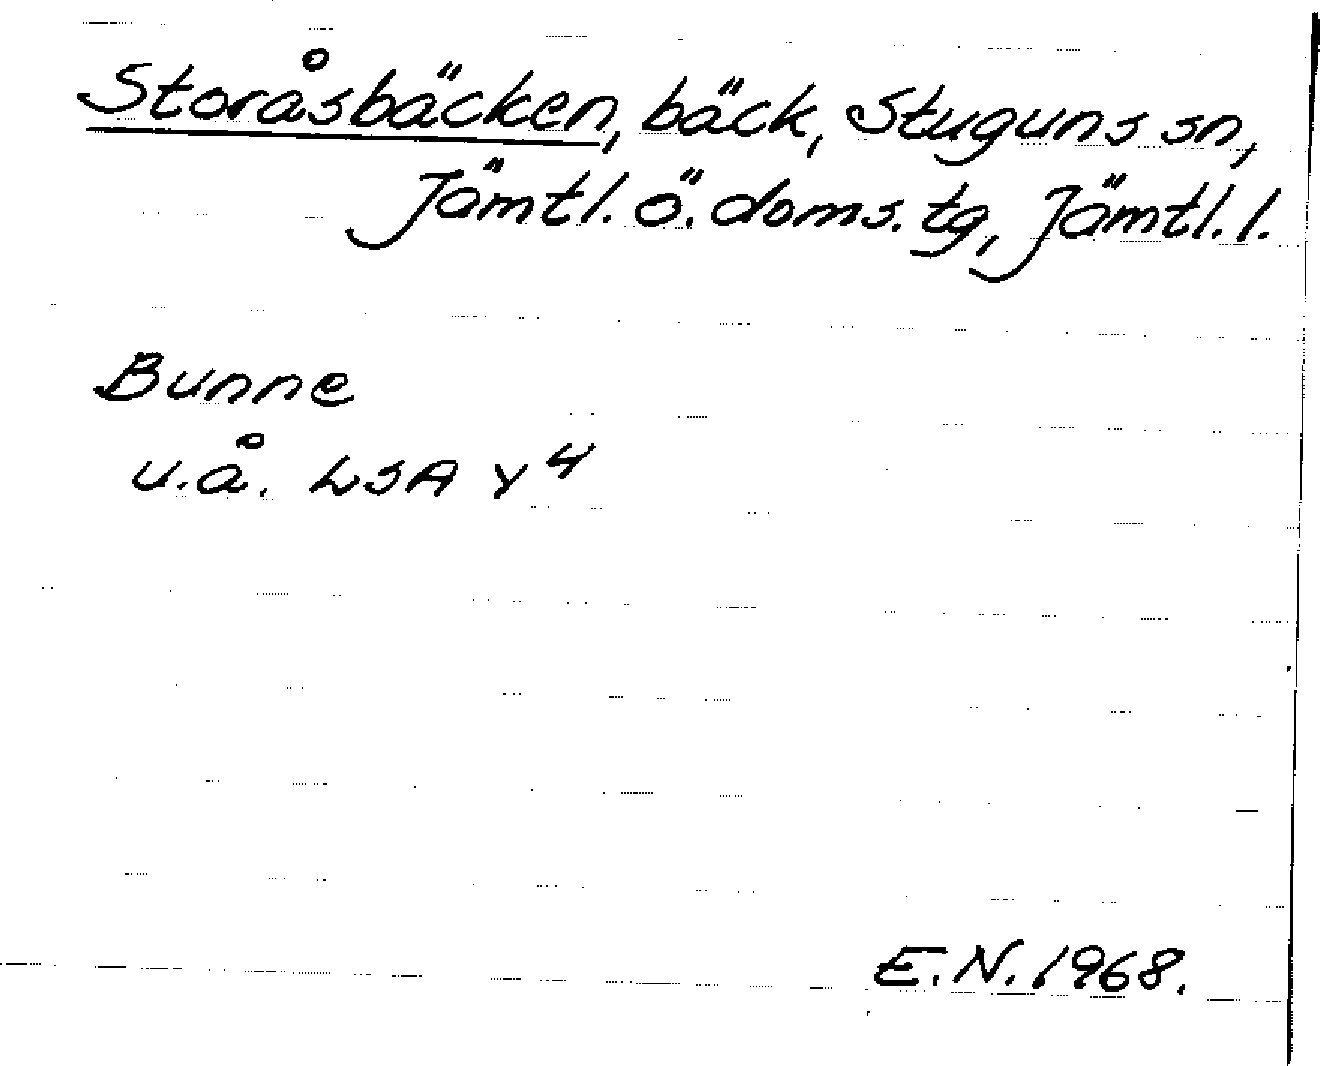 Storåsbäcken, bäck, Stuguns sn,
Jämtl. ö. doms. tg, Jämtl. l.
Bunne
u.å. LSA Y 4
E.N. 1968.